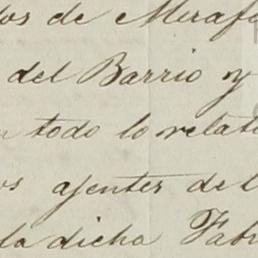 os de Miraf
del Barrio y
todo lo relat
os ajentes del
la dicha Fabr